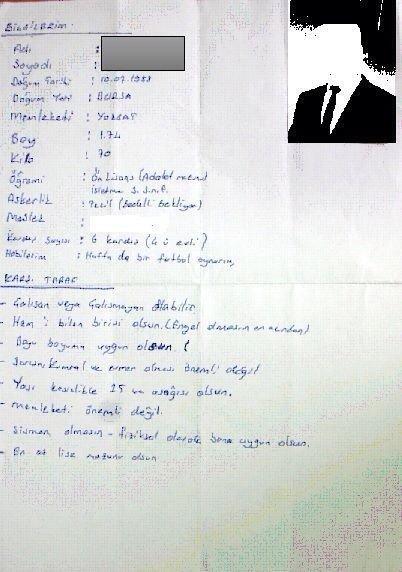 BİLGİLERİM:
Adı :
Soyadı :
Doğum Tarihi : 10.07.1988
Doğum Yeri : BURSA
Memleketi : YOZGAT
Boy : 1.74
Kilo : 70
Öğrenimi : Ön Lisans (Adalet mezunu)
İşletme 3. sınıf
Askerlik : Tecil (Bedelli bekliyor)
Meslek :
Kardeş Sayısı : 6 kardeş (4 ü evli)
Hobilerim : Hafta da bir futbol oynarım,
KARŞI TARAF
- Çalışan veya Çalışmayan olabilir
- Ham i bilen birisi olsun. (Engel olmasın en azından)
- Boyu boyuma uygun olsun.
- olması önemli değil
- Yaşı kesinlikle 25 ve aşağısı olsun.
- Memleketi önemli değil.
- Şişman olmasın - fiziksel olarak bana uygun olsun.
- En az lise mezunu olsun